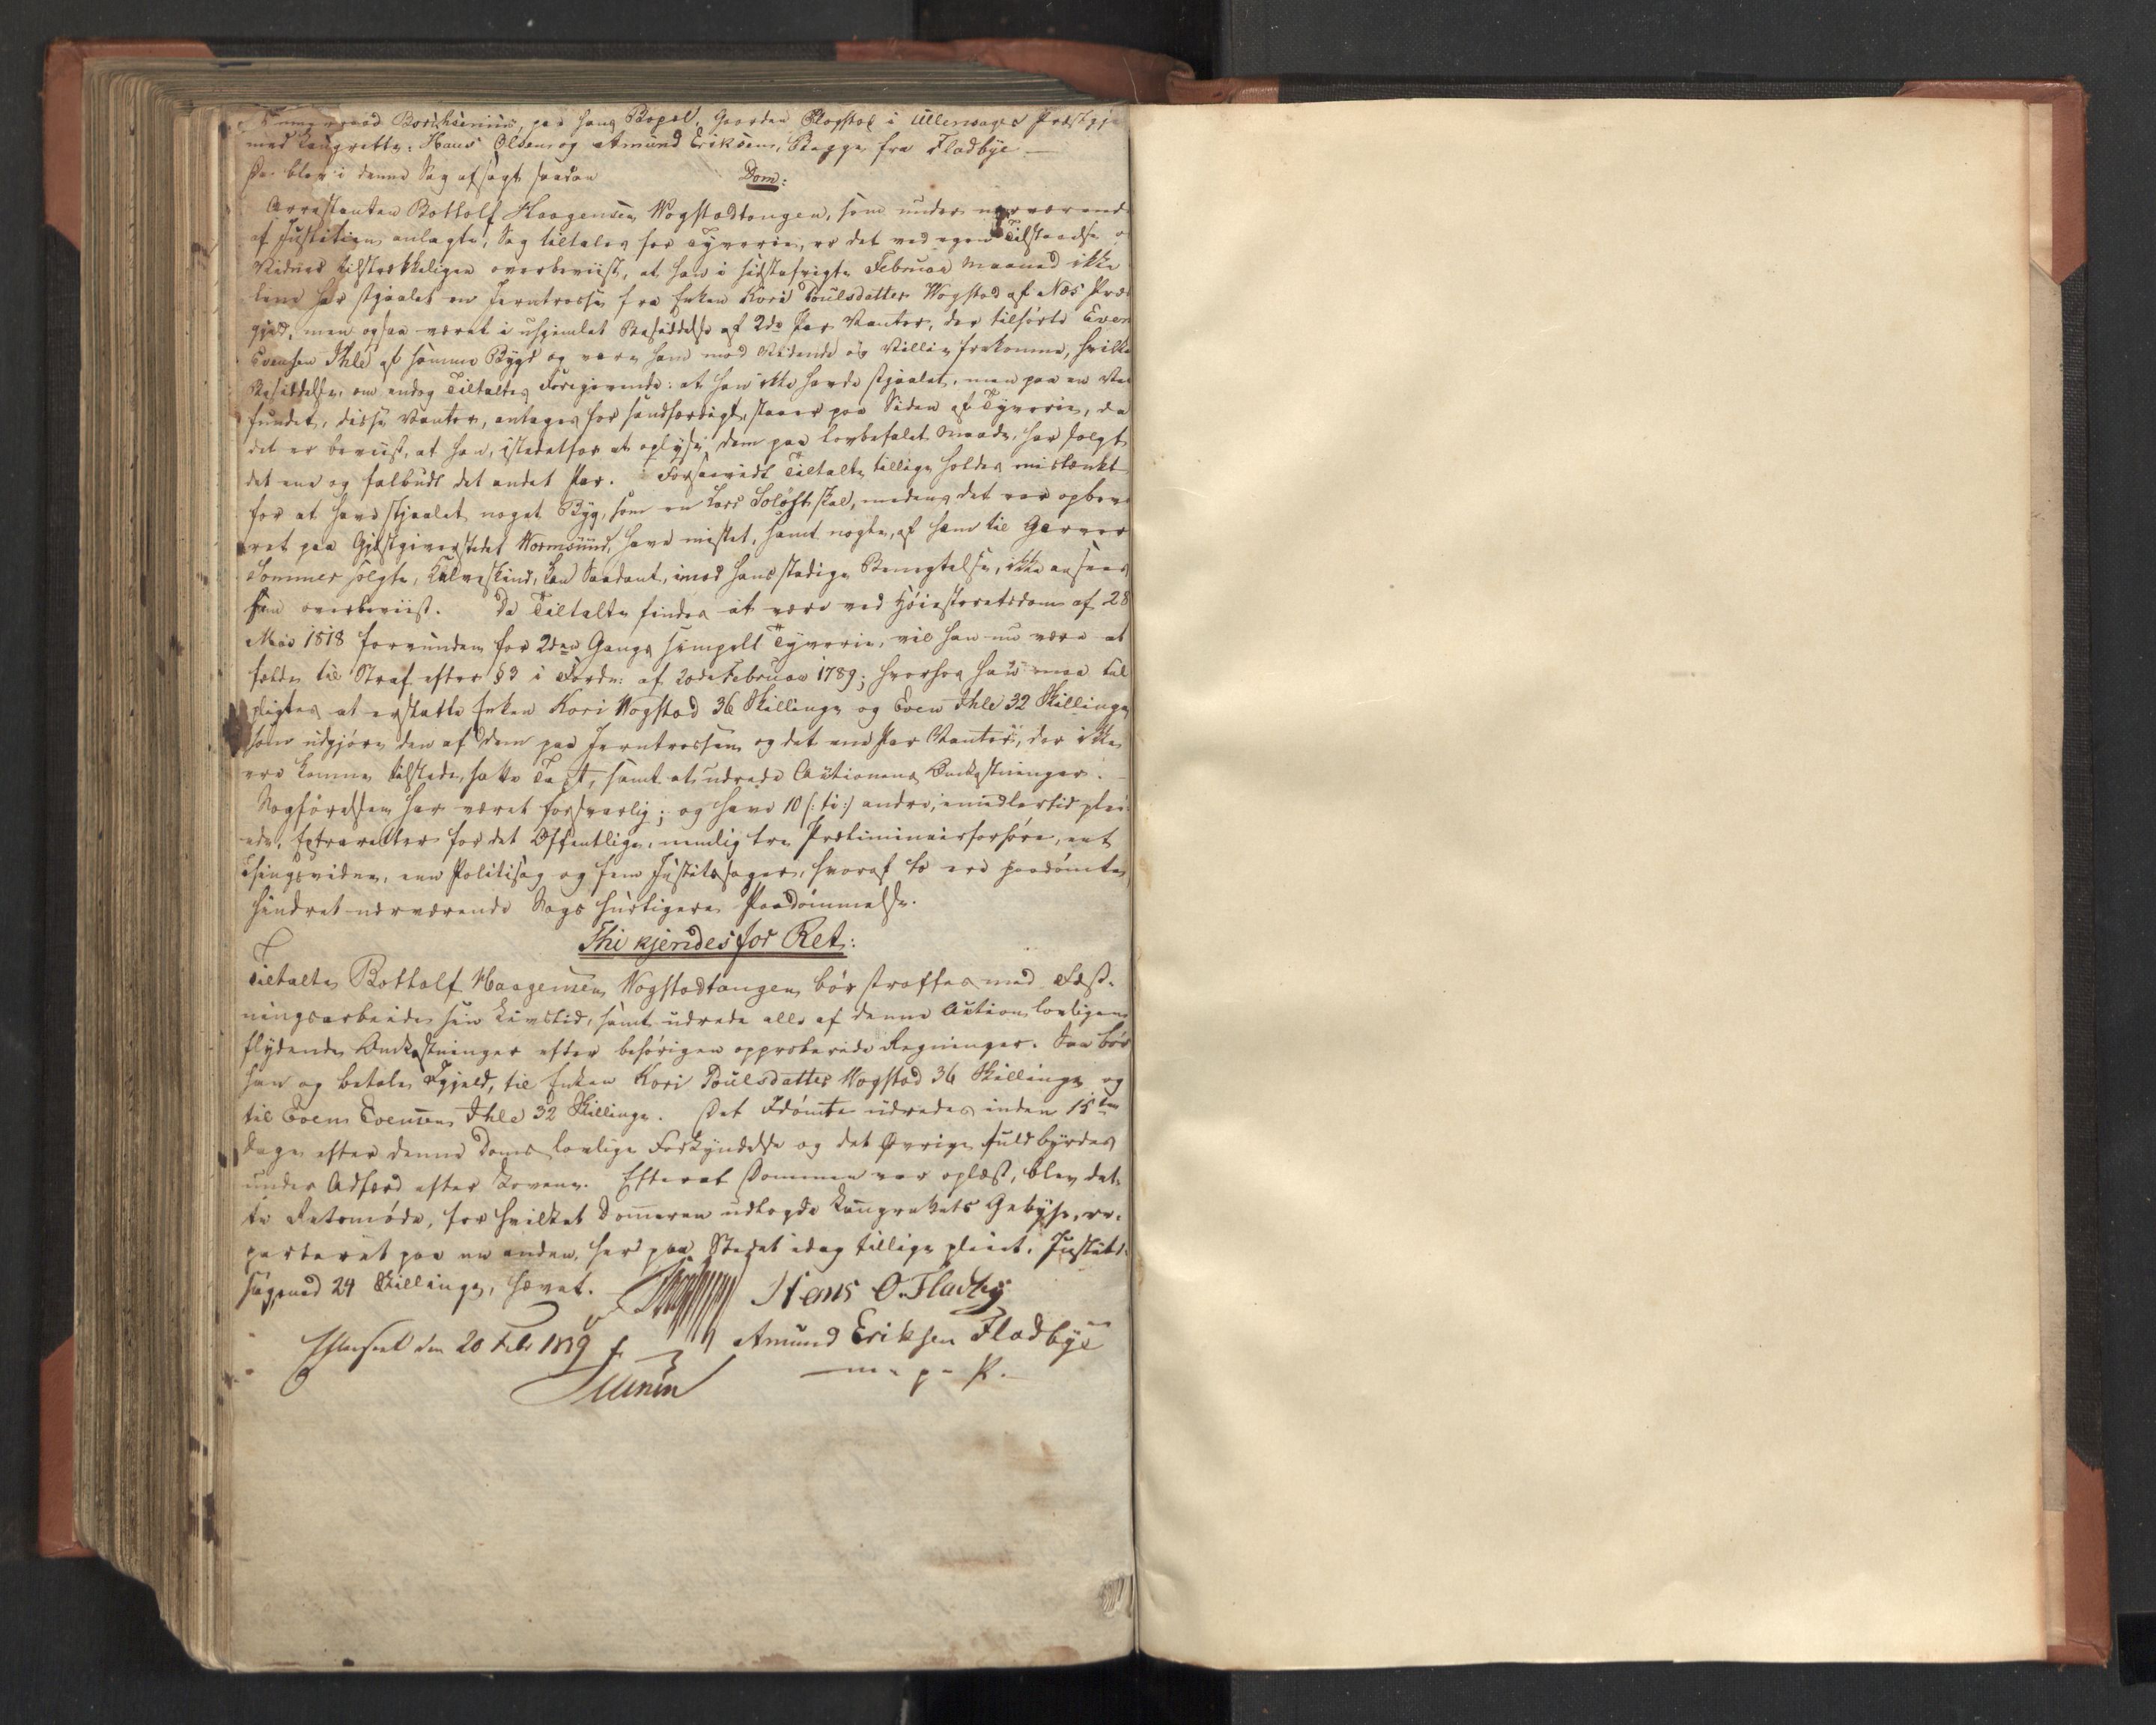 Borchsenius, paa hans Bopæl, Gaarden Kløgstad i Ullensager Præstgj
med Laugrette: Hans Olsen og Amund Eriksen, Begge fra Fladbye –
Da blev i denne Sag afsagt saadan Dom:
Arrestanten Bottolf Haagensen Wogstadtangen, som under nærværende
af Justitien anlagte Sag tiltales for Tyverie, er det ved egen Tilstaaelse o
Vidner tilstrækkeligen overbeviist, at han i sidstafvigte Februar Maaned ikke
lene har stjaalet en Jerntrosse fra Enken Kari Poulsdatter Wogstad af Næs Præ
gjæd, men ogsaa været i uhjemlet Besiddelse af 2de Par Vanter, der tilhørte Even
Evensen Ihle af samme Bygd og være ham mod Vidende og Villie frakomne, hvilke
Besiddelse, om endog Tiltaltes Foregivende: at han ikke havde stjaalet, men paa en Vei
fundet, disse Vanter, antages for sandfærdigt, staaer paa Siden af Tyverie, da
det er beviist, at han, istedetfor at oplyse dem paa lovbefalet Maade, har solgt
det ene og falbudt det andet Par. Forsaavidt Tiltalte tillige holdes mistænkt
for at have stjaalet noget Byg, som en Lars Soløst skal, medens det var opbeva
ret paa Gjæstgiverstedet Wormsund, have mistet, samt nogle, af ham til Garver
Sommer solgte, Kalveskind, kan Saadant, imod hans stadige Benegtelse, ikke ansees
som overbeviist. Da Tiltalte findes at være ved Høiesteretsdom af 28
Mai 1818 forvunden for 2den Gangs simpelt Tyverie, vil han nu være at
fælde til Straf efter §3 i Fordn: af 20de Februar 1789; hvorhos han maa til
pligtes at erstatte Enken Kari Wogstad 36 Skillinge og Even Ihle 32 Skillinge
som udgjøre den af dem paa Jerntrossen og det ene Par Vanter, der ikke
ere komne tilstede, satte Taxt, samt at udrede Actionens Omkostninger. –
Sagførelsen har været forsvarlig; og have 10 /: ti :/ andre, imidlertid plei-
ede, Extraretter for det Offentlige, nemlig tre Præliminairforhøre, eet
Thingsvidne, een Politisag og fem Justitssager, hvoraf to ere paadømte
hindret nærværende Sags hurtigere Paadømmelse.
Thi kjendes for Ret:
Tiltalte Bottolf Haagensen Wogstadtangen bør straffes med Fæst-
ningsarbeide sin Livstid, samt udrede alle af denne Action lovligen
flydende Omkostninger efter behørigen approberede Regninger. Saa bør
han og betale Igjeld, til Enken Kari Poulsdatter Wogstad 36 Skillinge og
til Even Evensen Ihle 32 Skillinge. Det Idømte udredes inden 15ten
Dage efter denne Doms lovlige Forkyndelse og det Øvrige fuldbyrdes
under Adfærd efter Loven. Efterat Dommen var oplæst, blev det-
te Retsmøde, for hvilket Dommeren udlagde Laugrettets Gebyhr, re-
parteret paa en anden, her paa Stedet idag tillige pleiet, Justits-
sag med 24 Skillinge, hævet.
Hans O. Fladby
den 20 Febr 1819
Amund Eriksen Fladbye
m. p. P.